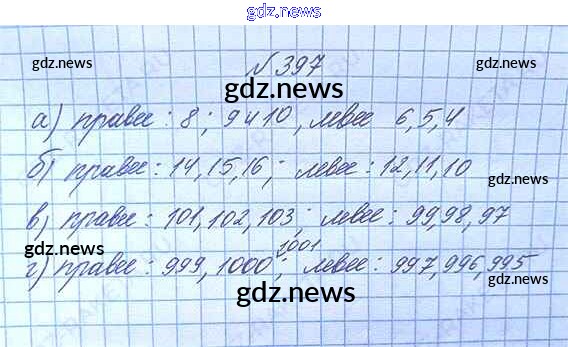 gdz.news
gdz.news gdz.news
№397
gdz.news
а) правее: 8; 9 и 10, левее 6,5,4
б) правее: 14,15,16; левее: 12,11,10
gdz.news
в) правее: 101, 102, 103; левее: 99,98,97
gdz.news
1001
г) правее: 999, 1000; левее: 997,996,995
gdz.news
gdz.news